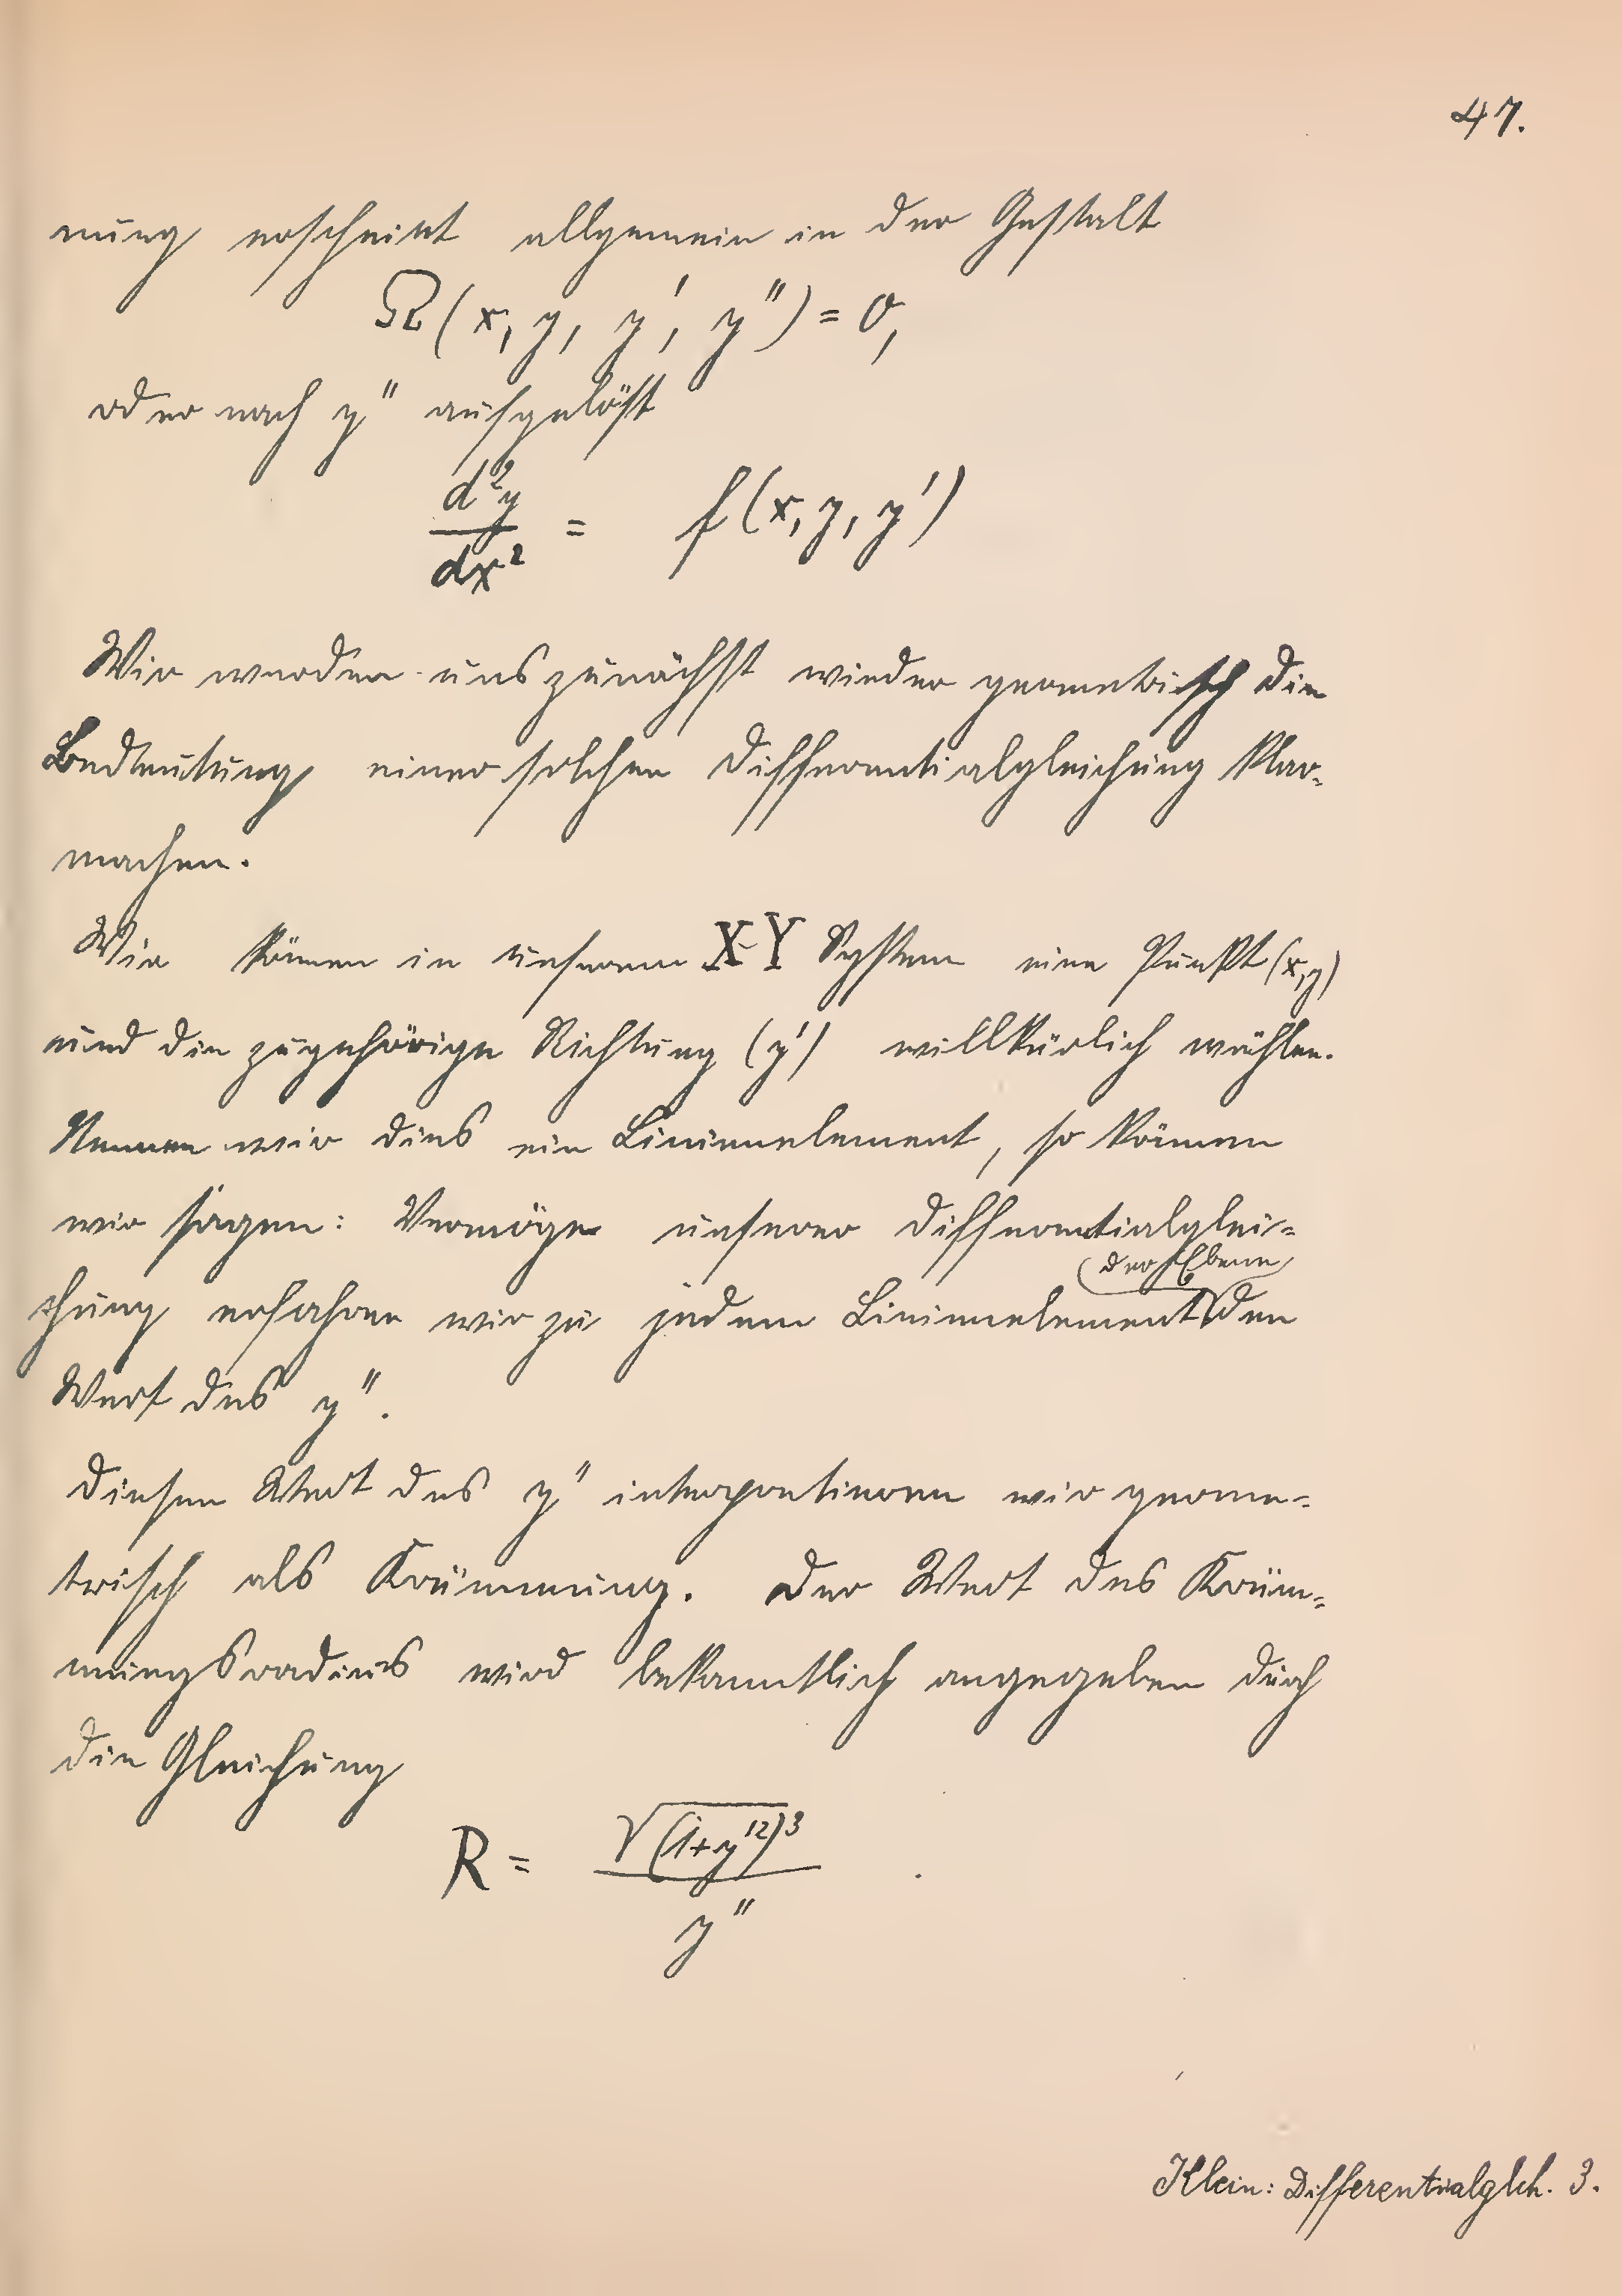 47.
nung erscheint allgemein in der Gestalt
Ω(x, y, y', y'') = 0,
oder nach y'' aufgelöst
d²y/dx² = f(x, y, y')
Wir werden uns zunächst wieder geometrisch die
Bedeutung einer solchen Differentialgleichung klar-
machen.
Wir können in unserem X-Y System einen Punkt (x,y)
und die zugehörige Richtung (y') willkürlich wählen.
Nennen wir dies ein Linienelement, so können
wir sagen: Vermöge unserer Differentialglei-
der Ebene
chung erfahren wir zu jedem Linienelement den
Wert des y''.
Diesen Wert des y'' interpretieren wir geome-
trisch als Krümmung. Der Wert des Krüm-
mungsradius wird bekanntlich angegeben durch
die Gleichung
R = √(1+y'²)³ / y''
Klein: Differentialglch. 3.